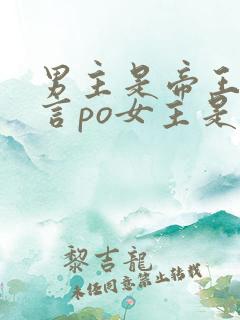 男主是帝王
言po女主是
黎吉龍
未经同意禁止转载